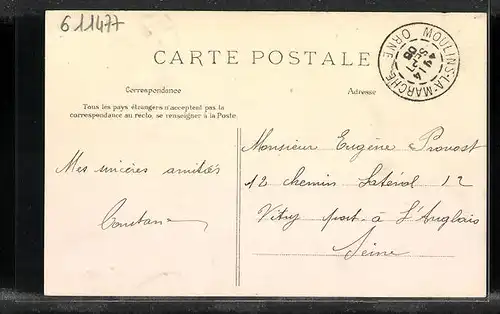 611477
CARTE POSTALE
MOULINS-LA-MARCHE
ORNE
Correspondance
Adresse
Tous les pays étrangers n'acceptent pas la
correspondance au recto, se renseigner à la Poste
Monsieur Eugène Provost
12 chemin Latéral 12
Vitry port-à L'Anglais
Seine
Mes sincères amitiés